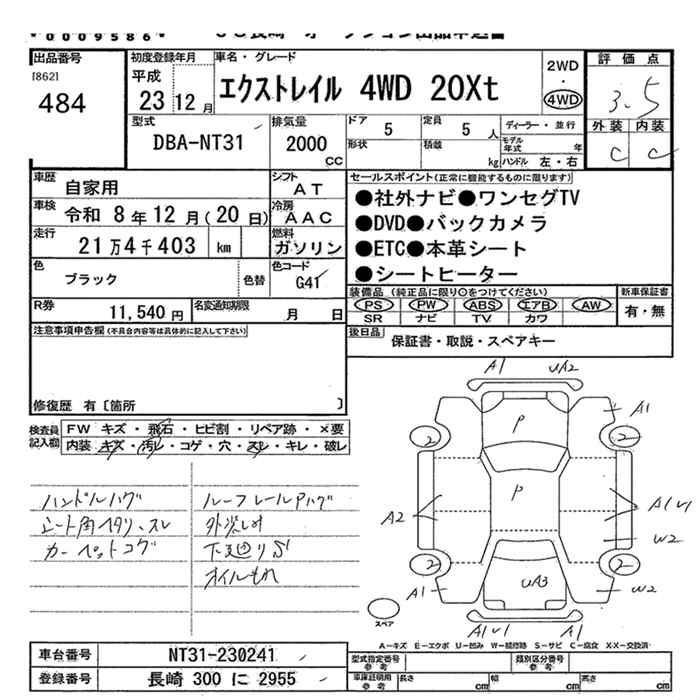 0009586
出品番号
[862]
484
初度登録年月
平成
23 12月
車名・グレード
エクストレイル 4WD 20Xt
2WD
・
4WD
評価点
3.5
外装 内装
C C
型式
DBA-NT31
排気量
2000
CC
ドア 5
形状
定員 5人
積載 kg
ディーラー・並行
モデル年式 年
ハンドル 左・右
車歴 自家用
シフト AT
車検 令和 8年12月(20日)
冷房 AAC
走行 21万4千403 km
燃料 ガソリン
色 ブラック 色替
色コード G41
R券 11,540円
名変通知期限 月 日
セールスポイント(正常に機能するものに限ります)
●社外ナビ●ワンセグTV
●DVD●バックカメラ
●ETC●本革シート
●シートヒーター
装備品(純正品に限り○をつけてください)
PS PW ABS エアB AW
SR ナビ TV カワ
新車保証書
有・無
後日品 保証書・取説・スペアキー
注意事項申告欄(不具合内容等は具体的に記入して下さい)
修復歴 有〔箇所 〕
検査員記入欄
FW キズ・飛石・ヒビ割・リペア跡・×要
内装・キズ・汚レ・コゲ・穴・スレ・キレ・破レ
ハンドルハゲ
シート角ヘタリ、スレ
カーペットコゲ
ルーフレールPハゲ
外装しめ
下廻りS
オイルもれ
A1 UA2
A1
P
2 2
P
A2
A1U1
W2
2 2
UA3
A1
W2
A1U1 A1
スペア
A-キズ E-エクボ U-凹み W-補修跡 S-サビ C-腐食 X・XX-交換済
車台番号 NT31-230241
登録番号 長崎 300 に 2955
型式指定番号 参考
類別区分番号 参考
車庫証明用 参考
長さ cm
幅 cm
高さ cm